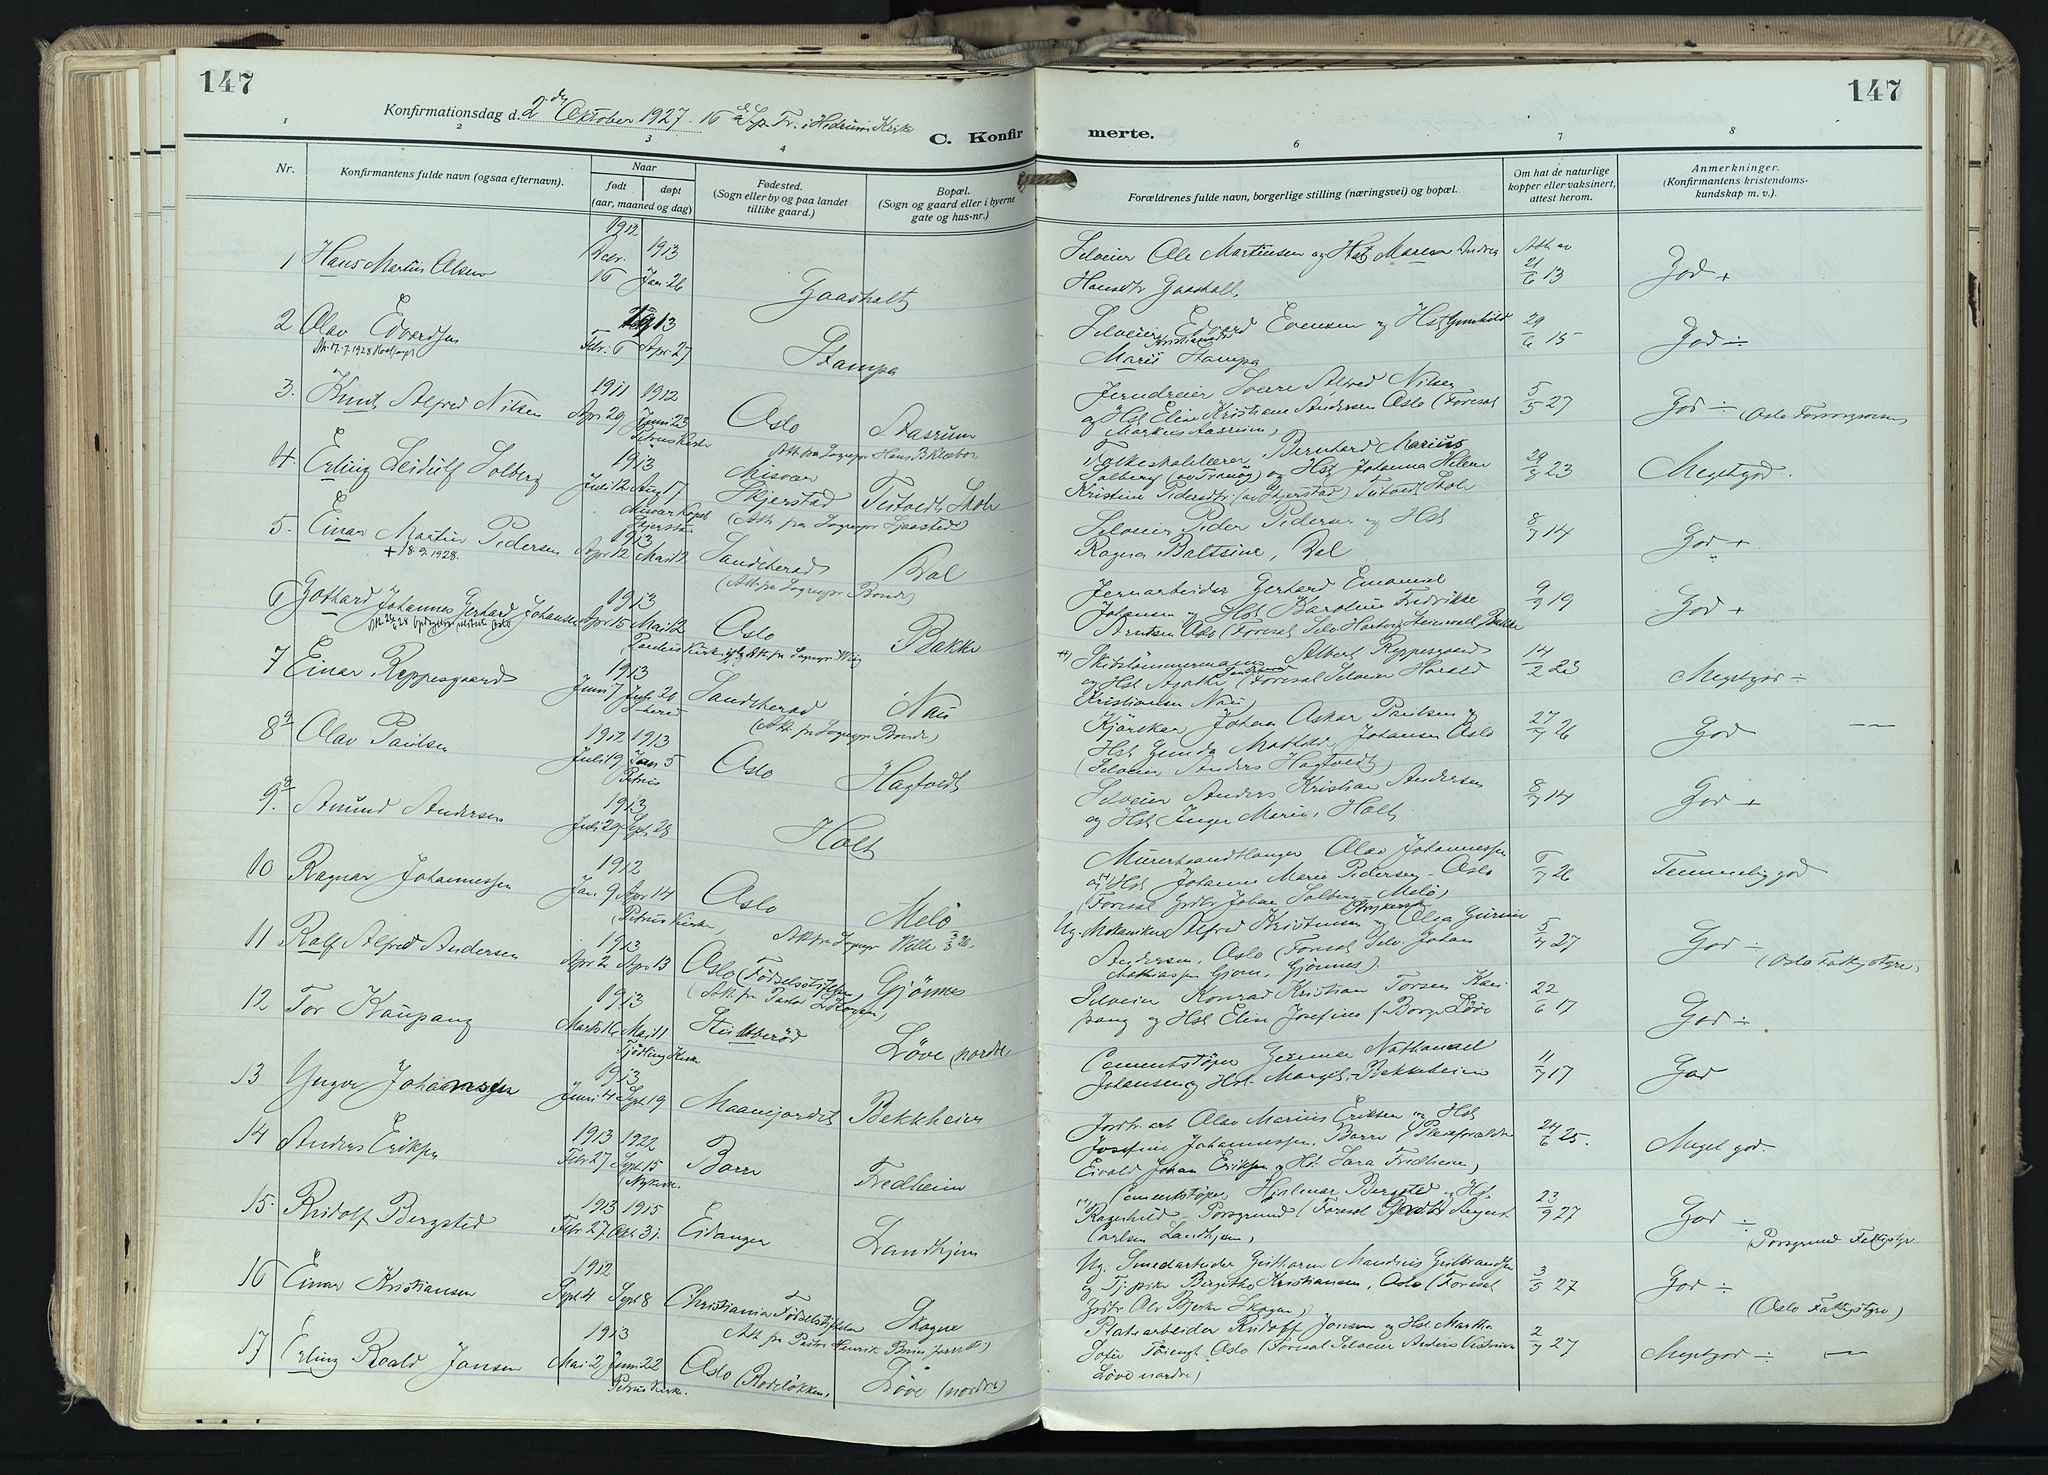 147
147
Konfirmationsdag d. 2den Oktober 1927 - 16 S. e. Tr. i Hedrum Kirke
C. Konfirmerte.
1 2 3 4 5 6 7 8
Nr.
Konfirmantens fulde navn (ogsaa efternavn).
Naar
født
døpt
(aar, maaned og dag)
Fødested.
(Sogn eller by og paa landet
tillike gaard.)
Bopæl.
(Sogn og gaard eller i byerne
gate og hus-nr.)
Forældrenes fulde navn, borgerlige stilling (næringsvei) og bopæl.
Om hat de naturlige
kopper eller vaksinert,
attest herom.
Anmerkninger.
(Konfirmantens kristendoms-
kundskap m. v.).
1 Hans Martin Olsen
1912 Decbr. 16
1913 Jan. 26
Gaasholt
Selveier Ole Martinsen og Hst Maren Andrea
Hansdtr Gaasholt
Att av 21/6 13
God +
2 Olav Edvardsen
1913
Febr. 6 Apr. 27
Stampa
Selveier Edvard Evensen og Hst Gunhild
Kristiansdtr
Marie Stampa
29/6 15
God ÷
3. Knut Alfred Nilsen
1911 Apr 29
1912 Juni 23
Petrus Kirke
Oslo
Aasrum
Jerndreier Sverre Alfred Nilsen
og Hst Elise Kristiane Andersen Oslo (Foresat
Markus Aasrum)
5/5 27
God ÷ (Oslo Forsorgsvesen
4. Erling Leidulf Solberg
1913
Juli 12 Aug 17
Misvær Kapel
Skjerstad
Misvær
Skjerstad
Tistvedt Skole
Folkeskolelærer Bernhard Marius
Solberg (av Tranøy) og Hst Johanna Helene
Kristine Pedersdtr (av Skjerstad) Tistvedt Skole
29/8 23
Megetgod
5. Einar Martin Pedersen
+ 18.9.1928.
1913
Apr 12 Mai 12
Sandeherad
(Att. fra Sognepr Bonde)
Dal
Selveier Peder Pedersen og Hst
Ragna Baltsine, Dal
8/7 14
God +
6 Gothard Johannes Gerhard Johansen
1913
Apr 15 Mai 12
Oslo
Bakke
Jernarbeider Gerhard Emanuel
Johansen og Hst Karoline Fredrikke
Arntsen Oslo (Foresat Selv. Hartvig Steinsvoll Bakke
9/9 19
God +
7 Einar Reppesgaard
1913
Juni 7 Juli 20
Sandeherad
(Att. fra Sognepr Bonde)
Nau
Skibstømmermann Albert Reppesgaard
og Hst Agathe (Foresat Selveier Harald
Kristiansen Nau)
14/2 23
Megetgod ÷
8 Olav Paulsen
1912 1913
Juli 19 Jan 5
Petrus
Oslo
Hagtvedt
Kjørekar Johan Oskar Paulsen og
Hst Gunda Mathilde Johansen Oslo
(Selveier Anders Hagtvedt)
27/7 26
God —
9. Amund Andersen
1913
Juli 29 Sept. 28
Holt
Selveier Anders Kristian Andersen
og Hst Inger Marie, Holt
8/7 14
God +
10 Ragnar Johannessen
1912
Jan. 9 Apr 14
(Petrus Kirke)
Oslo
Melø
Murerhaandtlanger Olav Johannessen
og Hst Johanne Marie Pedersen - Oslo
(Foresat Grdbr Johan Solberg Melø)
6/7 26
Temmelig god
11 Ralf Alfred Andersen
1913
Apr 2 Apr 13
Oslo (Fødselsstiftelsen
Gjønnes
Ug. Mekaniker Alfred Kristensen og Olga Gurine
Andersen, Oslo (Foresat Selv. Johan
Mathiassen Gjønnes).
5/4 27
God ÷
(Oslo Fattigstyre)
12 Tor Kaupang
1913
Marts 16 Mai 11
Tjødling Kirke
Løve (nordre
Selveier Konrad Kristian Torsen Kau
pang og Hst Elise Josefine f. Borge Løve
22/6 17
God ÷
13 Yngve Johannessen
1913
Juni 4 Sept 19
Maanejordet
Bekkheim
Cementstøper Gunnar Nathanael
Johansen og Hst Margit, Bekkeheim
11/7 17
God
14 Anders Eriksen
1913 1922
Febr. 27 Sept. 15
(Nykirke
Borre
Fredheim
Jordbr. arb Olav Marius Eriksen og Hst
Josefine Johannessen, Borre (Pleieforældre
Eivald Johan Eriksen og Hst Sara Fredheim)
24/6 25.
Meget god.
15. Rudolf Bergsted
1913 1915
Febr. 27 Okt 31
Eidanger
Landhjem
Cementstøper Hjalmar Bergsted og Hst.
Ragnhild Porsgrund (Foresat
Carlsen Landhjem)
23/9 27
God ÷
Porsgrund Fattigstyre
16 Einar Kristiansen
1912
Sept. 4 Sept 8
Christiania Fødselsstiftelse
Skogne
Ug. Smedarbeider Guthorm Mandius Gulbrandsen
og Tj.pike Bergitha Kristiansen, Oslo (Foresat
Grdbr Ole Bjerke Skogne)
3/5 27
God ÷
(Oslo Fattigstyre)
17 Erling Roald Jansen
1913
Mai 2 Juni 22
Petrus Kirke
Oslo (Rodeløkken)
Løve (nordre)
Platearbeider Rudolf Jansen og Hst Martha
Sofie Oslo (Foresat Selveier Anders
Løve nordre)
2/7 27
Megetgod ÷ —